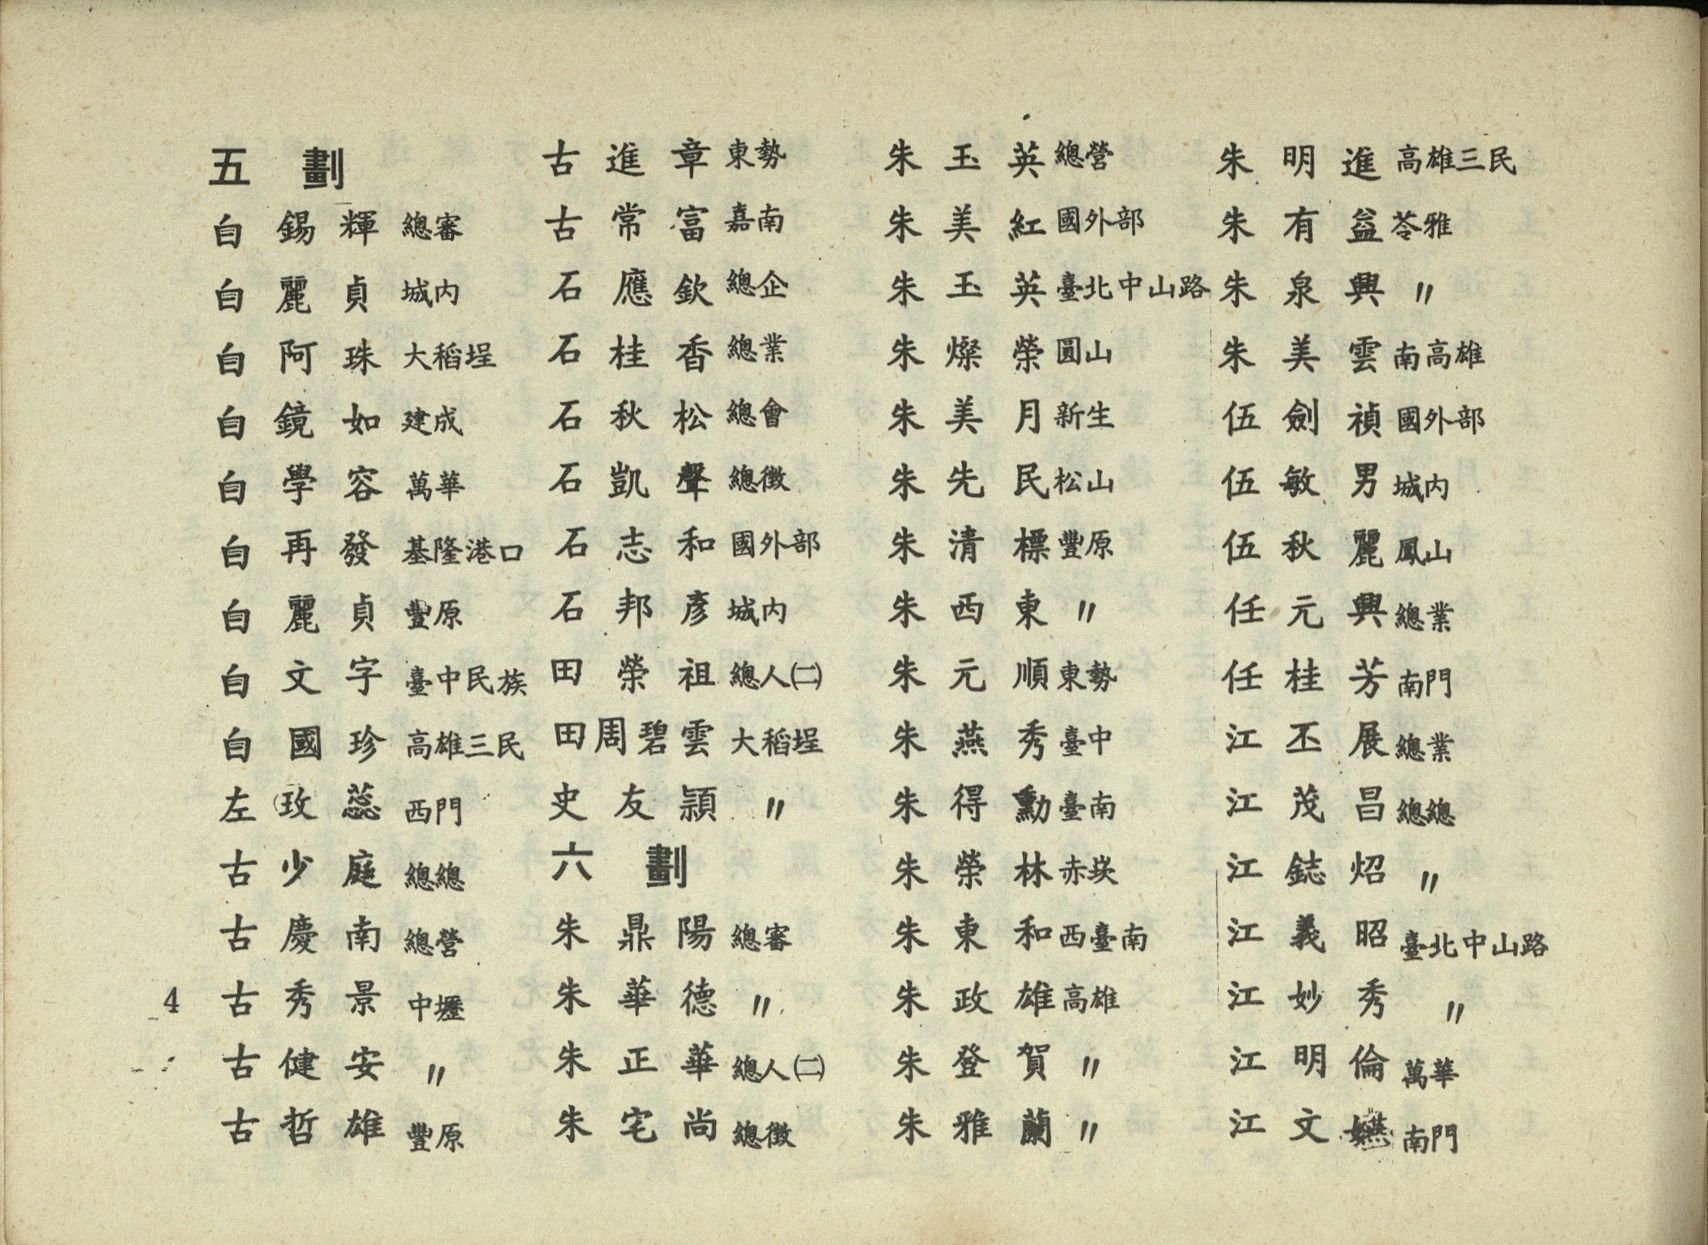 五劃
白錫輝 總審
白麗貞 城内
白阿珠 大稻埕
白鏡如 建成
白學容 萬華
白再發 基隆港口
白麗貞 豐原
白文字 臺中民族
白國珍 高雄三民
左玫蕊 西門
古少庭 總總
古慶南 總營
古秀景 中壢
古健安 〃
古哲雄 豐原
古進章 東勢
古常富 嘉南
石應欽 總企
石桂香 總業
石秋松 總會
石凱聲 總徵
石志和 國外部
石邦彥 城内
田榮祖 總人㈡
田周碧雲 大稻埕
史友頴 〃
六劃
朱鼎陽 總審
朱華德 〃
朱正華 總人㈡
朱宅尚 總徵
朱玉英 總營
朱美紅 國外部
朱玉英 臺北中山路
朱燦榮 圓山
朱美月 新生
朱先民 松山
朱清標 豐原
朱西東 〃
朱元順 東勢
朱燕秀 臺中
朱得勳 臺南
朱榮林 赤崁
朱東和 西臺南
朱政雄 高雄
朱登賀 〃
朱雅蘭 〃
朱明進 高雄三民
朱有益 苓雅
朱泉興 〃
朱美雲 南高雄
伍劍禎 國外部
伍敏男 城内
伍秋麗 鳳山
任元興 總業
任桂芳 南門
江丕展 總業
江茂昌 總總
江鋕炤 〃
江義昭 臺北中山路
江妙秀 〃
江明倫 萬華
江文嬿 南門
4